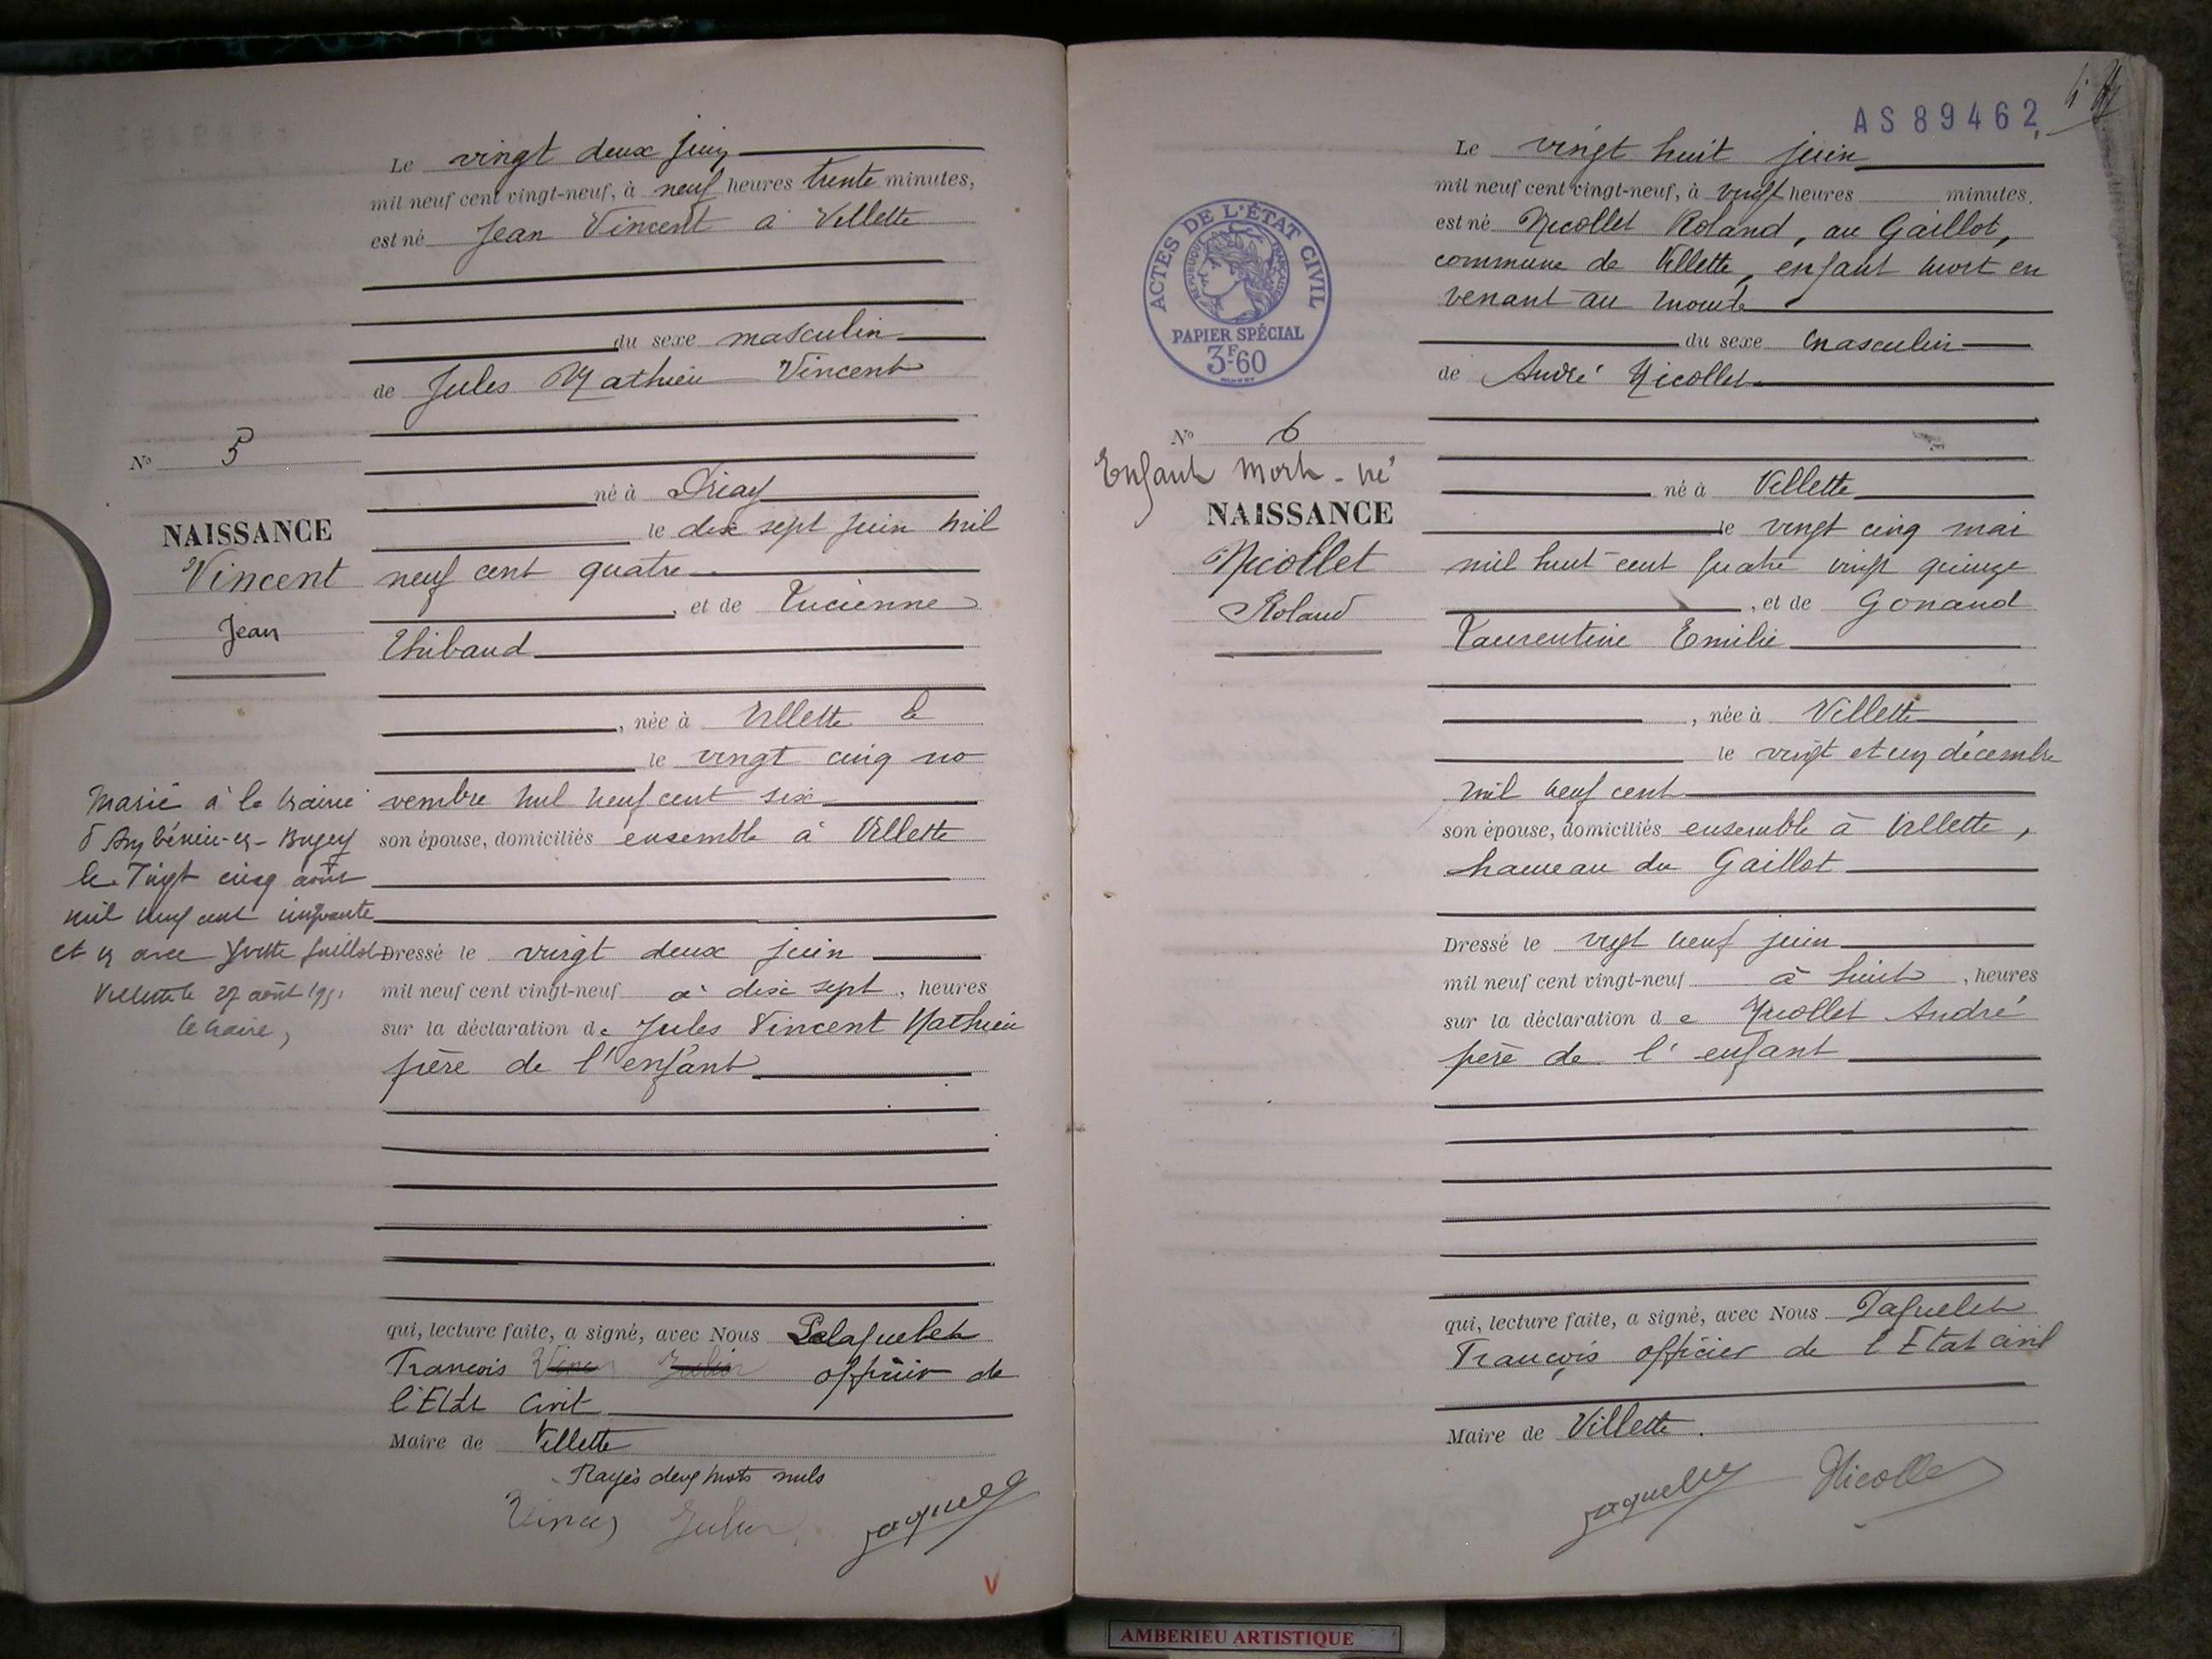 Le vingt deux juin
mil neuf cent vingt-neuf, à neuf heures trente minutes,
est né Jean Vincent à Villette
du sexe masculin
de Jules Mathieu Vincent
né à Priay
le dix sept juin mil
neuf cent quatre
, et de Lucienne
Thibaud
, née à Villette le
le vingt cinq no
vembre mil neuf cent six
son épouse, domiciliés ensemble à Villette
Dressé le vingt deux juin
mil neuf cent vingt-neuf à dix sept, heures
sur la déclaration de Jules Vincent Mathieu
père de l'enfant
qui, lecture faite, a signé, avec Nous
François officier de
l'Etat Civil
Maire de Villette
Rayés deux mots nuls
N° 5
NAISSANCE
Vincent
Jean
Marié à la mairie
d'Ambérieu-en-Bugey
le vingt cinq août
mil neuf cent cinquante
et un avec Yvette
Villette le 27 août 1951
le maire,
V
AS89462
Le vingt huit juin
mil neuf cent vingt-neuf, à vingt heures minutes.
est né Nicollet Roland, au Gaillot,
commune de Villette, enfant mort en
venant au monde
du sexe masculin
de André Nicollet
né à Villette
le vingt cinq mai
mil huit cent quatre vingt quinze
, et de Gonaud
Laurentine Emilie
, née à Villette
le vingt et un décembre
mil neuf cent
son épouse, domiciliés ensemble à Villette,
hameau du Gaillot
Dressé le vingt neuf juin
mil neuf cent vingt-neuf à huit, heures
sur la déclaration de Nicollet André
père de l'enfant
qui, lecture faite, a signé, avec Nous Paquelet
François officier de l'Etat civil
Maire de Villette.
Paquelet Nicollet
ACTES DE L'ÉTAT CIVIL
RÉPUBLIQUE FRANÇAISE
PAPIER SPÉCIAL
3F60
N° 6
Enfant mort-né
NAISSANCE
Nicollet
Roland
AMBERIEU ARTISTIQUE